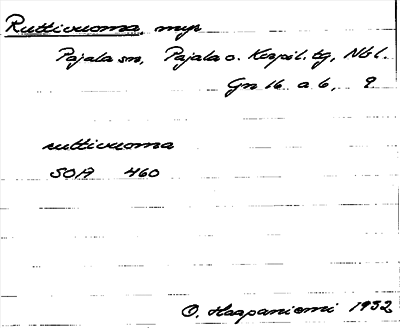 Ruttivuoma, myr
Pajala sn, Pajala o. Korpil. tg, Nbl.
Gn 16 a 6, 9.
ruttivuoma
SOA 460
O. Haapaniemi 1932